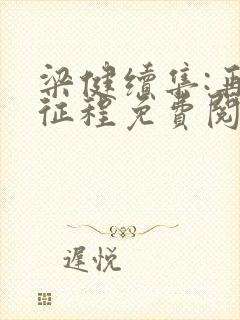 梁健续集:再
征程免费阅
遲悦